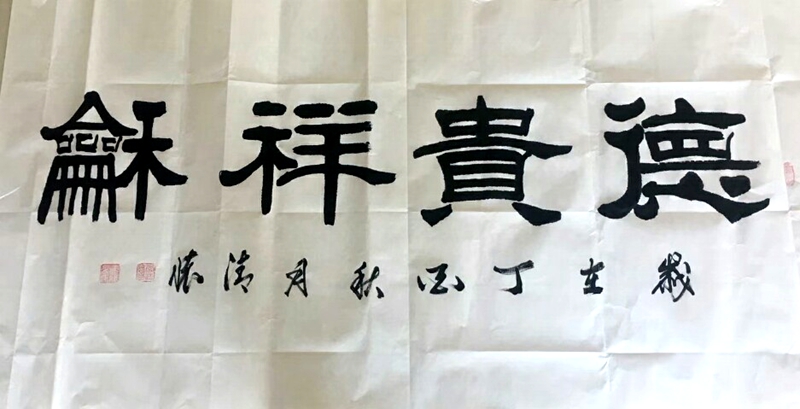 德貴祥龢
歲在丁酉秋月清懷